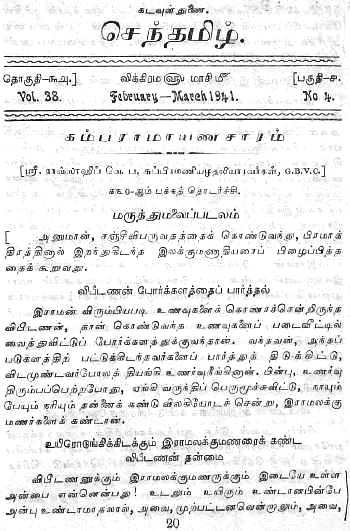 கடவுள் துணை.
செந்தமிழ்.
தொகுதி-௩௮. விக்கிரம௵ மாசி௴ [பகுதி-௪.
Vol. 38. February—March 1941. No 4.
கம்பராமாயணசாரம்
[ஸ்ரீ. ராவ்ஸாஹிப் வெ. ப. சுப்பிரமணியமுதலியாரவர்கள், G.B.V.C.]
பக்கத் தொடர்ச்சி.
மருத்துமலைப்படலம்
[ அனுமான், சஞ்சீவிபருவதத்தைக் கொண்டுவந்து, பிரமாத்
திரத்தினால் இறந்துகிடந்த இலக்குமணாதியரைப் பிழைப்பித்த
தைக் கூறுவது.
விபீடணன் போர்க்களத்தைப் பார்த்தல்
இராமன் விரும்பியபடி உணவுகளைக் கொணரச்சென்றிருந்த
விபீடணன், தான் கொண்டுவந்த உணவுகளைப் படைவீட்டில்
வைத்துவிட்டுப் போர்க்களத்துக்குவந்தான். வந்தவன், அந்தப்
படுகளத்திற் பட்டுக்கிடந்தவர்களைப் பார்த்துத் திடுக்கிட்டு,
விடமுண்டவர்போலத் தியங்கி உணர்வுநீங்கினான். பின்பு, உணர்வு
திரும்பப்பெற்றபோது, ஏங்கி வருந்திப் பெருமூச்சுவிட்டு, நாயும்
பேயும் நரியும் தன்னைக் கண்டு விலகியோடச் சென்று, இராமலக்கு
மணர்களைக் கண்டான்.
உயிரோடுங்கிக்கிடக்கும் இராமலக்குமணரைக் கண்ட
விபீடணன் தன்மை
விபீடணனுக்கும் இராமலக்குமணருக்கும் இடையே உள்ள
அன்பை என்னென்பது! உடலும் உயிரும் உண்டானபின்பே
அன்பு உண்டாமாதலால், அவை, முற்பட்டனவென்றாலும், அவை,
20